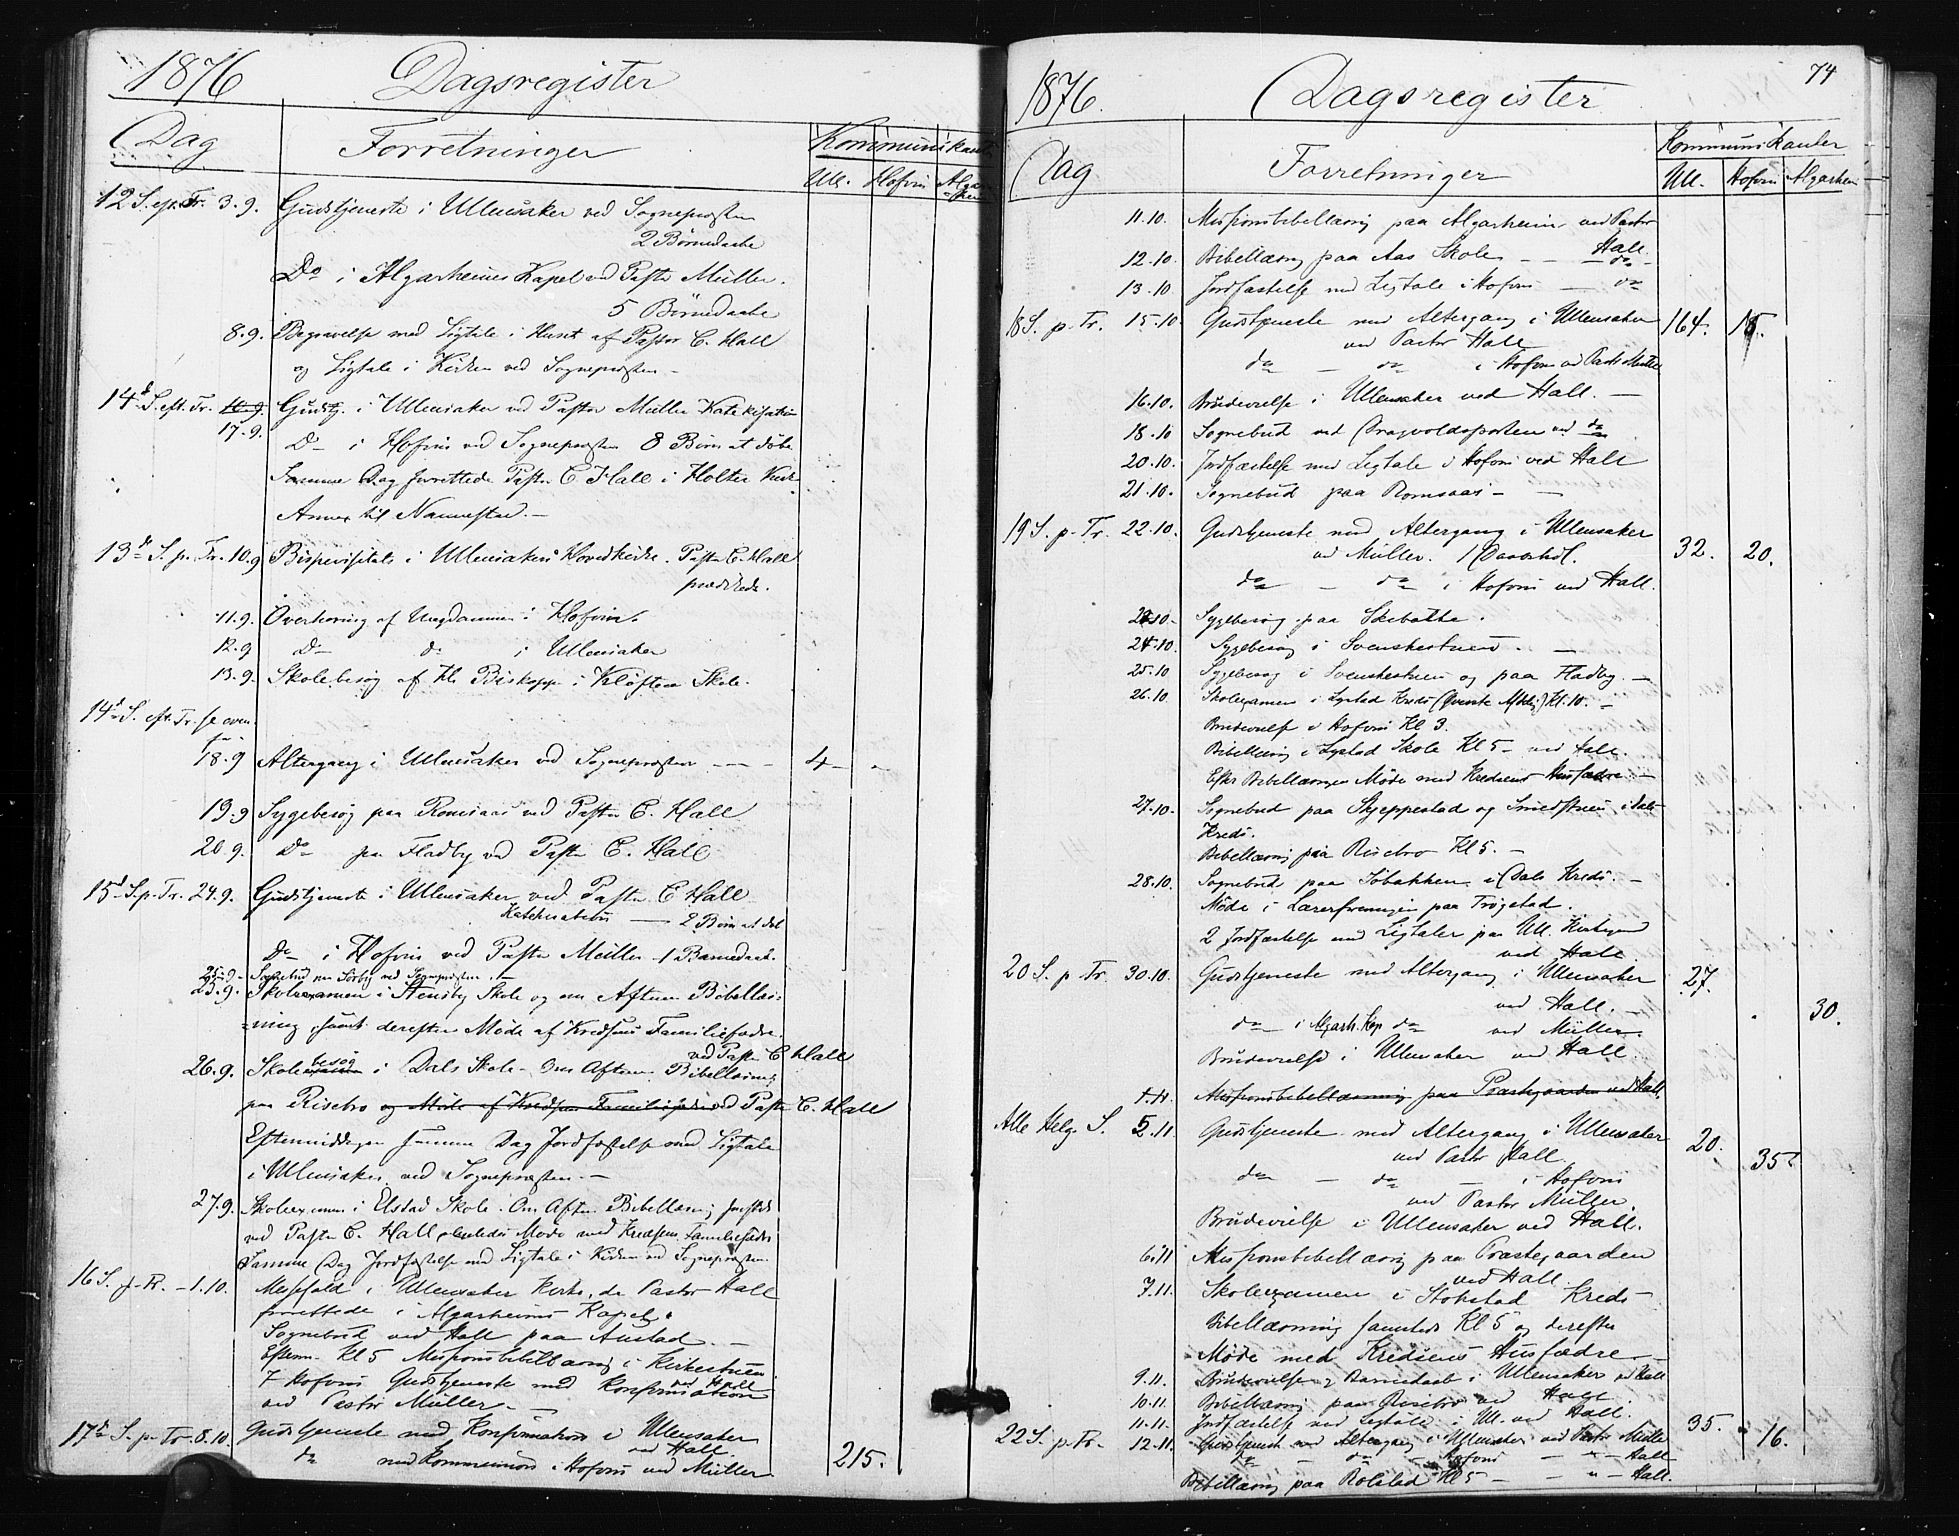 1876 Dagsregister
Dag Forretninger Kommunikant
Ull. Hofvin Algarheim
12 S. eft. Tr. 3.9. Gudstjeneste i Ullensaker ved Sognepresten
2 Barnedaabe
Do i Algarheims Kapel ved Pastor Müller.
5 Barnedaabe
8.9. Begravelse med Ligtale i Huset af Pastor C. Hall
og Ligtale i Kirken ved Sognepresten -
14d S. eft. Tr. 10.9. Gudstj. i Ullensaker ved Pastor Müller Katekisation
17.9. Do i Hofvin ved Sognepresten 8 Børn at døbe
Samme Dag forrettede Pastor C. Hall i Holter Kirke
Annex til Nannestad. -
13d S. p. Tr. 10.9 Bispevisitats i Ullensakers Hovedkirke. Pastor C. Hall
prædikede.
11.9. Overhøring af Ungdommen i Hofvin.
12.9 Do do i Ullensaker
13.9. Skolebesøg af Hr. Biskopp i Kløften Skole.
14d S. eft. Tr. se oven-
for
18.9 Altergang i Ullensaker ved Sognepresten - - - 4 - -
19.9 Sygebesøg paa Romsaas ved Pastor C. Hall
20.9. Do paa Fladby ved Pastor C. Hall
15d S. p. Tr. 24.9. Gudstjeneste i Ullensaker ved Pastor C Hall
Katekisation — 2 Børn at døbe
Do i Hofvin ved Pastor Müller 1 Barnedaab.
25.9. Sognebud paa Sørby ved Sognepresten. -
25.9. Skoleexamen i Stensby Skole og om Aftenen Bibellæs-
ning, samt derefter Møde af Kredsens Familiefædre
ved Pastor C Hall
26.9. Skolebesøg i Dals Skole - Om Aftenen Bibellæsning
paa Risebro og Møde af Kredsens Familiefædre ved Pastor C. Hall
Eftermiddagen samme Dag Jordfæstelse med Ligtale
i Ullensaker ved Sognepresten. -
27.9. Skoleexamen i Elstad Skole. Om Aften Bibellæsning
ved Pastor C. Hall Møde med Kredsens Familiefædre
Samme Dag Jordfæstelse med Ligtale i Kirken ved Sognepresten
16 S. p. Tr. - 1.10. Messefald i Ullensaker Kirke, da Pastor Hall
forrettede i Algarheims Kapel.
Sognebud ved Hall paa Austad. -
Efterm. Kl 5 Missionsbibellæsning i Kirkestuen
ved Hall
I Hofvin Gudstjeneste med Konfirmation
ved Pastor Müller. -
17d S. p. Tr. 8.10. Gudstjeneste med Konfirmation i Ullensaker
ved Hall.
do med Kommunion i Hofvin ved Müller. 215.
74
1876. Dagsregister
Dag Forretninger Kommunikanter
Ull. Hofvin Algarheim
11.10. Missionsbibellæsning paa Algarheim ved Pastor
Hall
12.10. Bibellæsning paa Aas Skole - - - do -
13.10. Jordfæstelse med Ligtale i Hofvin - do
18 S. p. Tr. 15.10. Gudstjeneste med Altergang i Ullensaker 164. 15.
ved Pastor Hall
do - do i Hofvin ved Pastor Müller
16.10. Brudevielse i Ullensaker ved Hall. -
18.10 Sognebud ved Dragvoldsporten ved do
20.10. Jordfæstelse med Ligtale i Hofvin ved Hall
21.10. Sognebud paa Romsaas - -
19 S. p. Tr. 22.10. Gudstjeneste med Altergang i Ullensaker
ved Müller. 1 Daabsbd. 32. 20.
do - do i Hofvin ved Hall.
23.10 - Sygebesøg paa Skibakke.
24.10. Sygebesøg i Svenskestuen. -
25.10 Sygebesøg i Svenskestuen og paa Fladby. -
26.10 Skoleexamen i Lystad Kreds Kl. 10. -
Brudevielse i Hofvin Kl 3.
Bibellæsning i Lystad Skole Kl 5 - ved Hall.
Efter Bibellæsningen Møde med Kredsens Husfædre. -
27.10. Sognebud paa Skjeppestad og Smedstuen i Dals
Kreds.
Bibellæsning paa Risebro Kl 5. -
28.10. Sognebud paa Søbakken i Dals Kreds. -
Møde i Lærerforeningen paa Trøgstad.
2 Jordfæstelse med Ligtaler paa Ull. Kirkegaard
ved Hall
20 S. p. Tr. 30.10. Gudstjeneste med Altergang i Ullensaker 27.
ved Hall.
do - i Algarh. Kap do ved Müller. 30.
Brudevielse i Ullensaker ved Hall.
1.11. Missionsbibellæsning paa Præstegaarden ved Hall
Alle Helg. S. 5.11. Gudstjeneste med Altergang i Ullensaker 20.
ved Pastor Hall.
do - do - i Hofvin 35
ved Pastor Müller.
Brudevielse i Ullensaker ved Hall.
6.11 Missionsbibellæsning paa Præstegaarden
ved Hall
7.11. Skoleexamen i Stokstad Kreds
Bibellæsning samsteds Kl 5 og derefter
Møde med Kredsens Husfædre -
9.11. Brudevielse og Barnedaab i Ullensaker ved Hall
10.11. Bibellæsning paa Risebro ved Hall
11.11. Jordfæstelse med Ligtale i Ull. ved Hall.
22 S. p. Tr. 12.11. Gudstjeneste med Altergang i Ullensaker ved Pastor Müller 35. 16.
do - do - Hofvin - " - Hall
Bibellæsning paa Rolstad Kl 5 - - " - Hall.